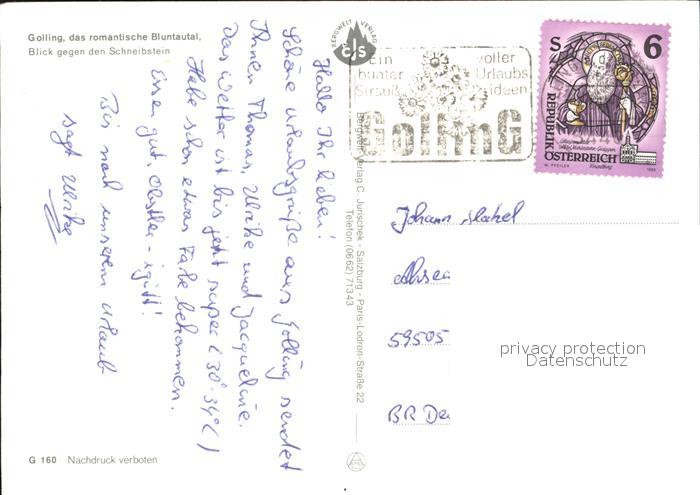 Golling, das romantische Bluntautal,
Blick gegen den Schneibstein
Hallo Ihr lieben!
Schöne Urlaubsgrüße aus Golling sendet
Ihnen Thomas, Ulrike und Jacqueline.
Das Wetter ist bis jetzt super (30°-34°C)
Habe schon etwas Farbe bekommen.
Essen gut, Kloster - igitt!
Bis nach unserem Urlaub
sagt Ulrike
G 160 Nachdruck verboten
BERGWELT VERLAG
cJs
Bergwelt-Verlag C. Jurischek - Salzburg - Paris-Lodron-Straße 22
Telefon (0662) 71343
Ein voller
bunter Urlaubs
Strauß ideen
GollinG
S 6
REPUBLIK
ÖSTERREICH
Johann
Ahsen
59505
BR Deu
privacy protection
Datenschutz